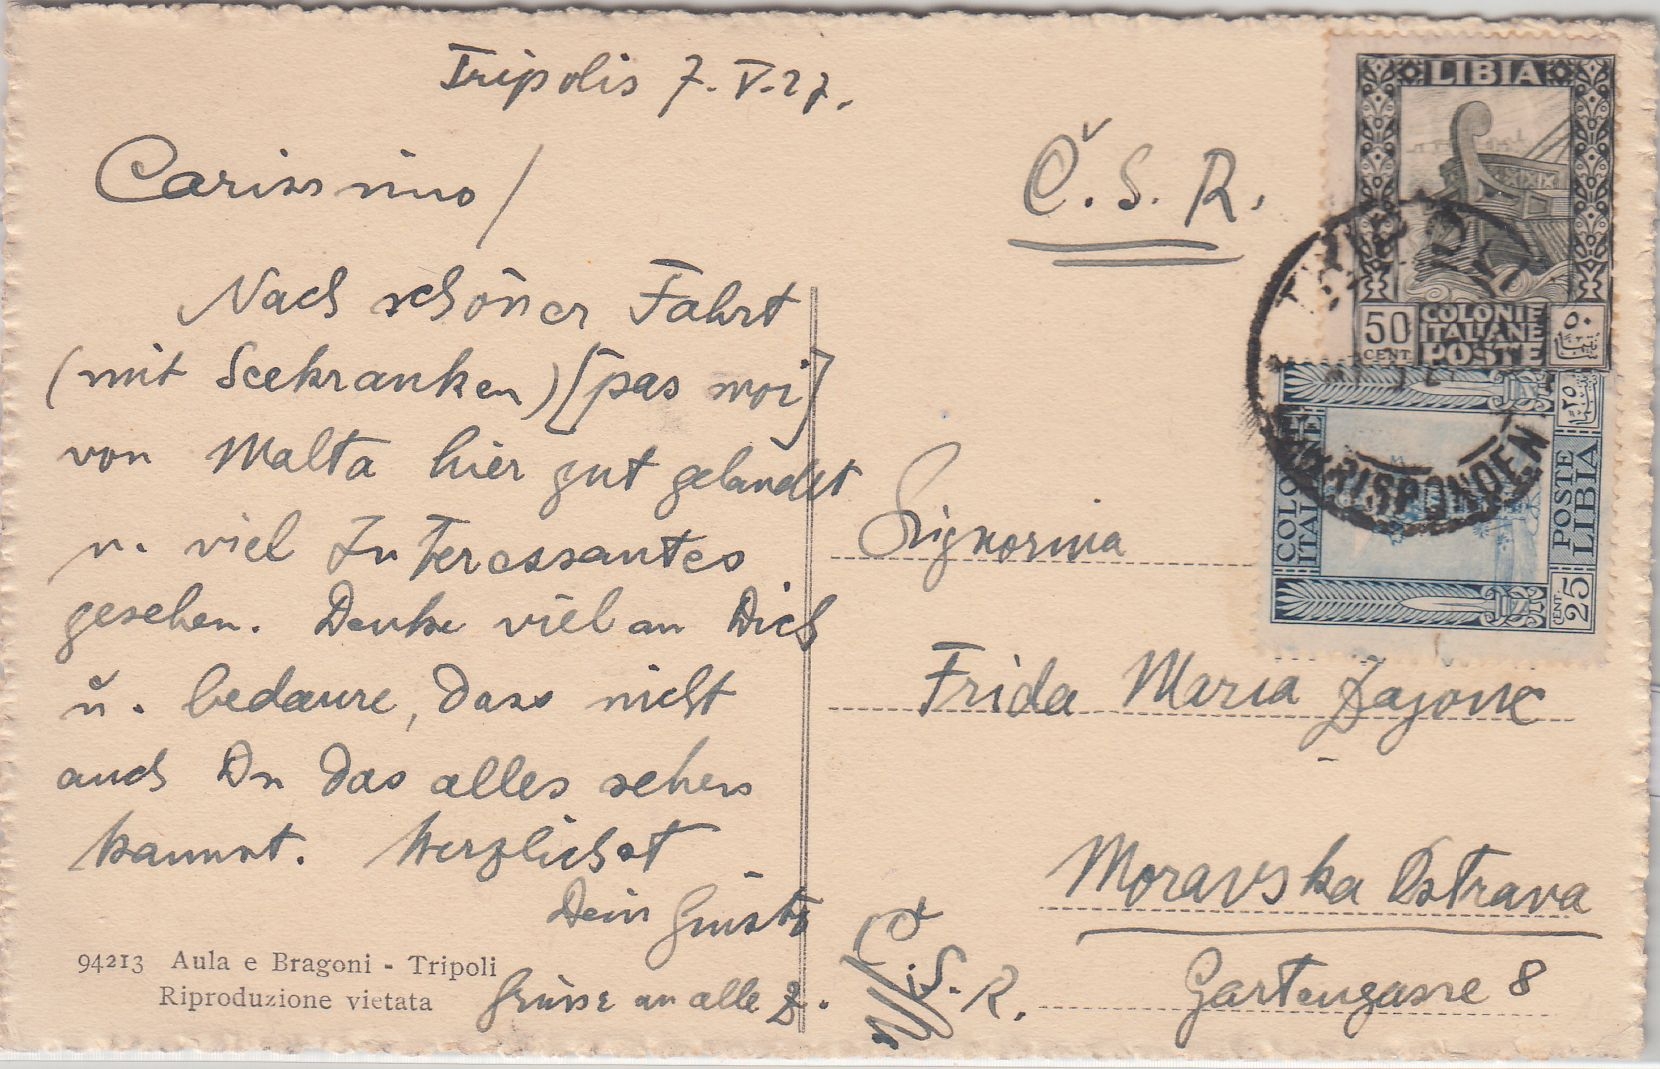 Tripolis 7.V.27.
Carissimo/
Nach schöner Fahrt
(mit Seekranken) [pas moi]
von Malta hier gut gelandet
u. viel Interessantes
gesehen. Denke viel an Dich
u. bedaure, dass nicht
auch Du das alles sehen
kannst. Herzlichst
Dein Gusti
Grüsse an alle Z.
94213 Aula e Bragoni - Tripoli
Riproduzione vietata
Č.S.R.
LIBIA
50
CENT.
COLONIE
ITALIANE
POSTE
٥٠
COLONIE
ITALIANE
POSTE
LIBIA
CENT. 25
٢٥
TRIPOLI
CORRISPONDEN
Signorina
Frida Maria Zajonc
Moravska Ostrava
Gartengasse 8
Č.S.R.